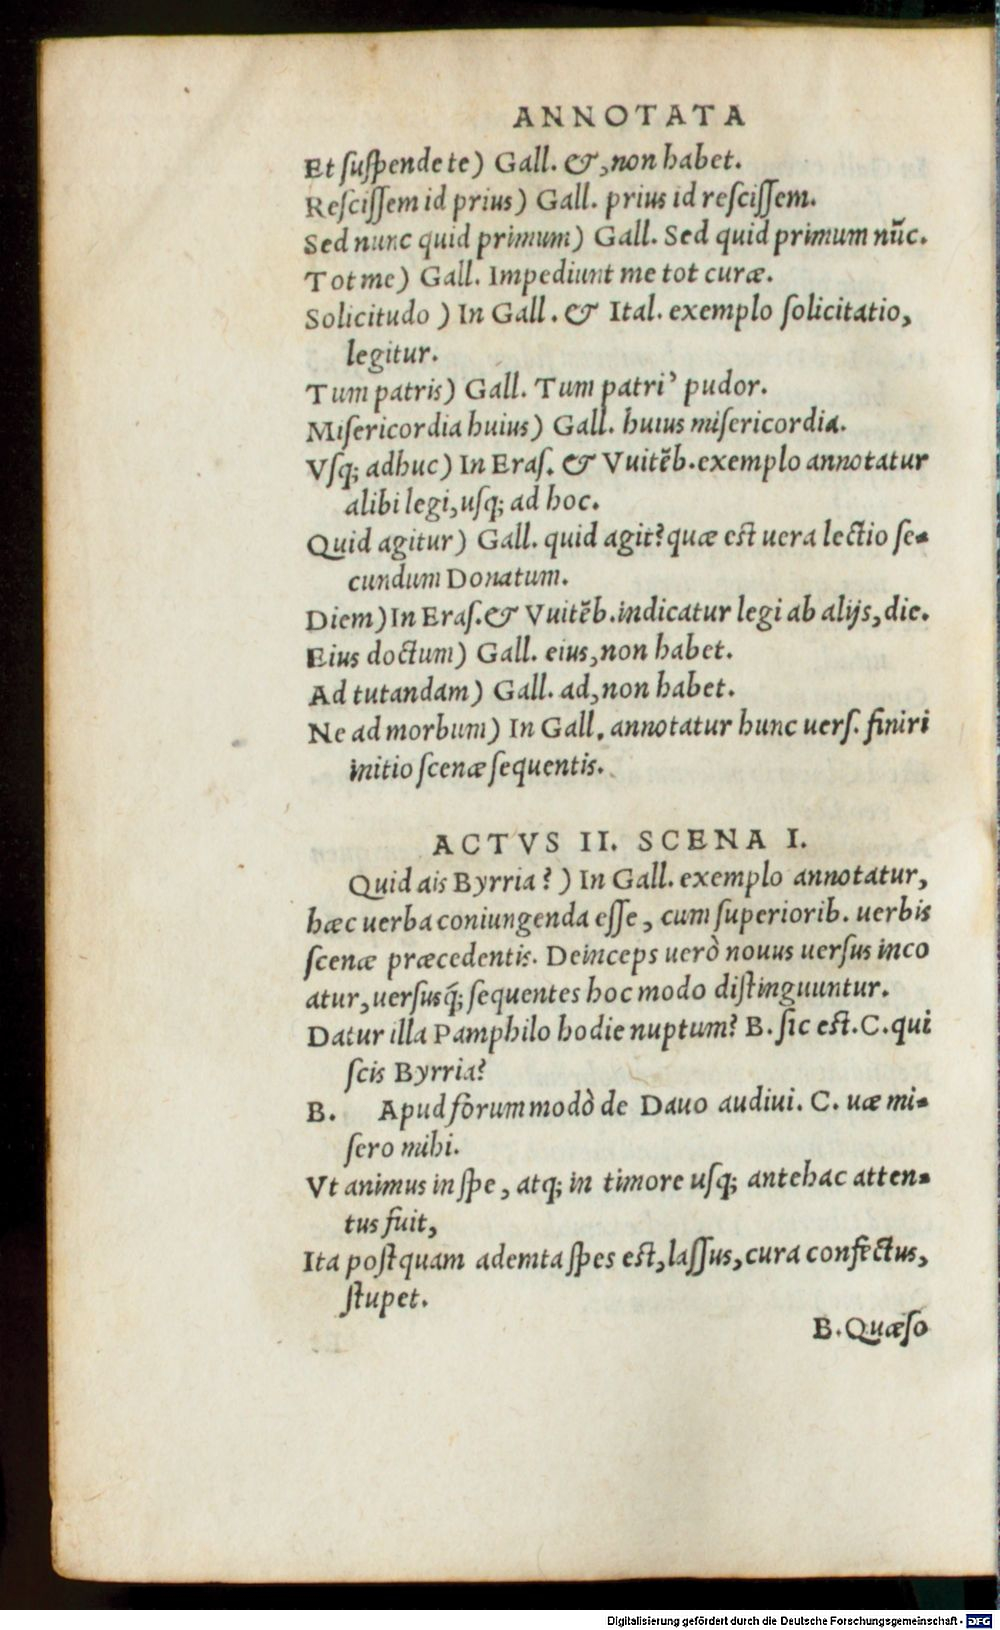 ANNOTATA
Et suspende te) Gall. &, non habet.
Rescissem id prius) Gall. prius id rescissem.
Sed nunc quid primum) Gall. Sed quid primum nũc.
Tot me) Gall. Impediunt me tot curæ.
Solicitudo ) In Gall. & Ital. exemplo solicitatio,
legitur.
Tum patris) Gall. Tum patri' pudor.
Misericordia huius) Gall. huius misericordia.
Vsq; adhuc) In Eras. & Vuitẽb. exemplo annotatur
alibi legi, usq; ad hoc.
Quid agitur) Gall. quid agit? quæ est uera lectio se-
cundum Donatum.
Diem) In Eras. & Vuitẽb. indicatur legi ab alijs, die.
Eius doctum) Gall. eius, non habet.
Ad tutandam) Gall. ad, non habet.
Ne ad morbum) In Gall. annotatur hunc uers. finiri
initio scenæ sequentis.
ACTVS II. SCENA I.
Quid ais Byrria? ) In Gall. exemplo annotatur,
hæc uerba coniungenda esse, cum superiorib. uerbis
scenæ præcedentis. Deinceps uerò nouus uersus inco
atur, uersusq́; sequentes hoc modo distinguuntur.
Datur illa Pamphilo hodie nuptum? B. sic est. C. qui
scis Byrria?
B. Apud forum modò de Dauo audiui. C. uæ mi-
sero mihi.
Vt animus in spe, atq; in timore usq; antehac atten-
tus fuit,
Ita postquam ademta spes est, lassus, cura confectus,
stupet.
B. Quæso
Digitalisierung gefördert durch die Deutsche Forschungsgemeinschaft - DFG